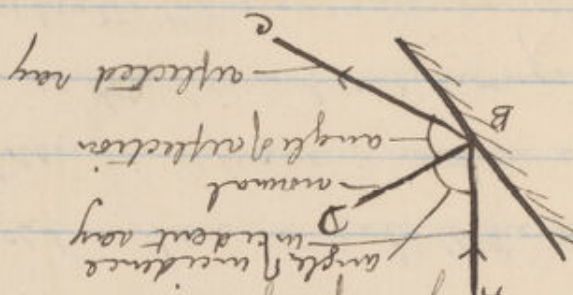 A
angle of incidence
incident ray
D
normal
angle of reflection
B
reflected ray
C